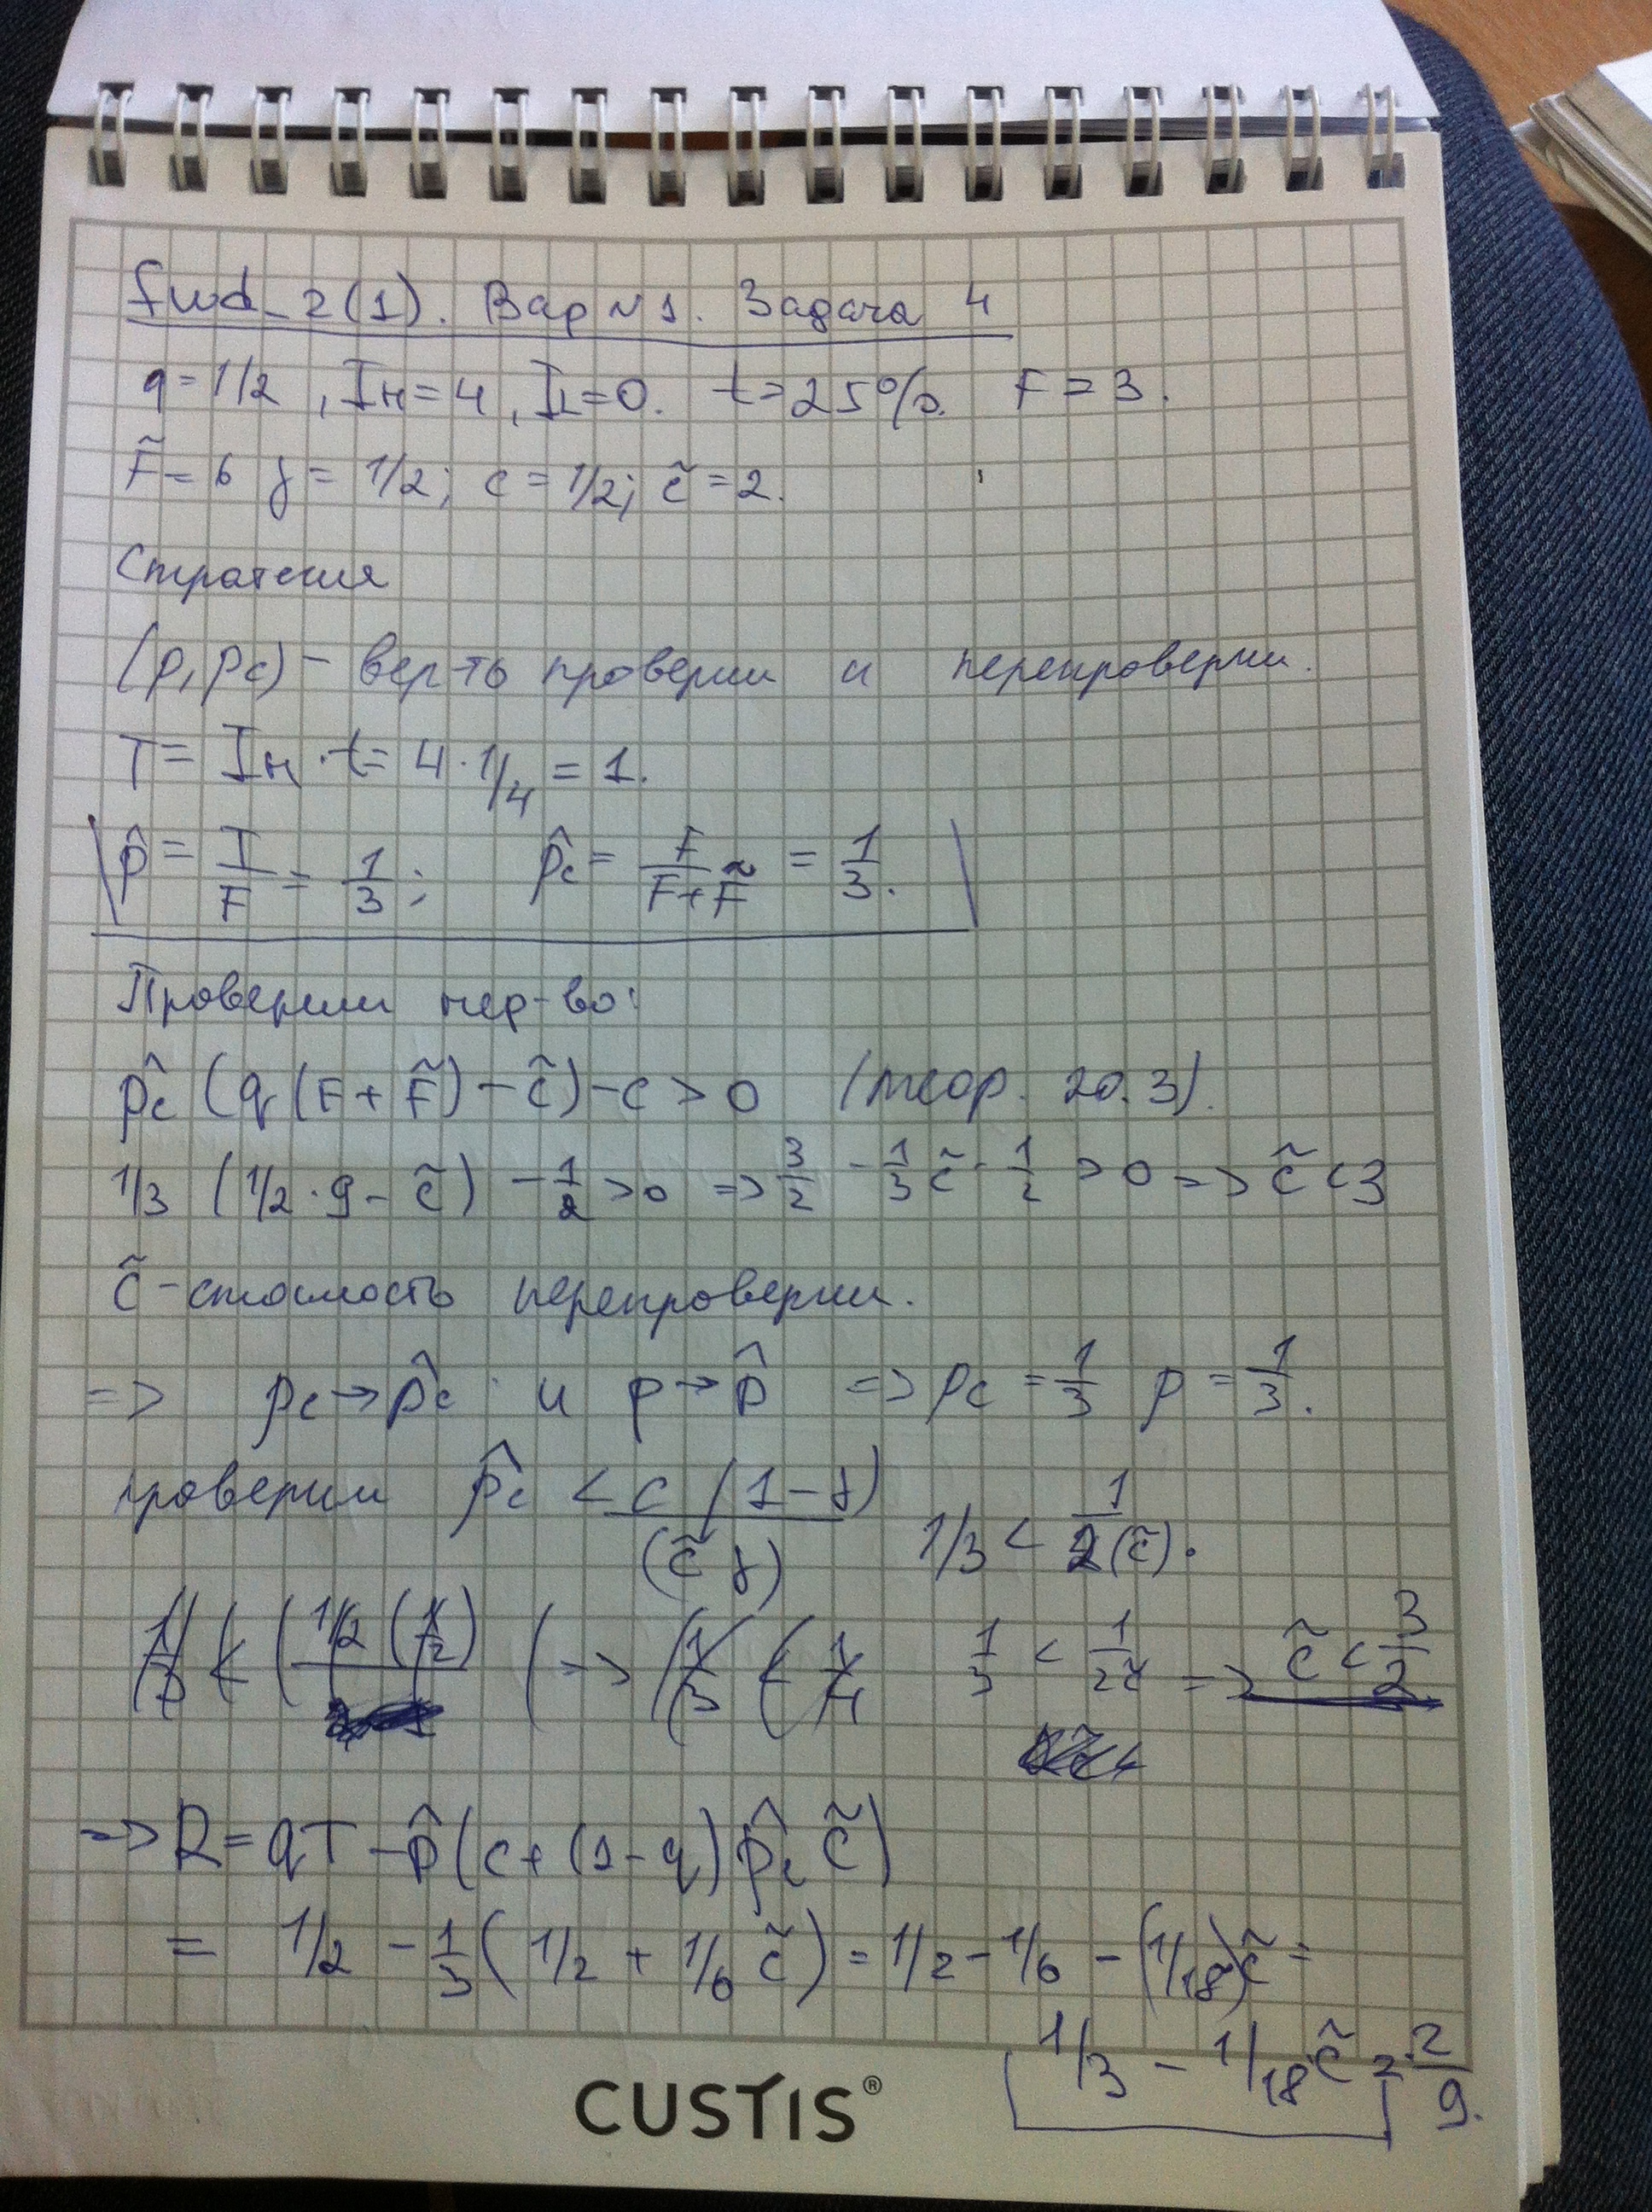 fwd_2(1). Вар №1. Задача 4
q=1/2, Iн=4, IL=0. t=25%. F=3.
F̃=6 γ=1/2; c=1/2; c̃=2.
Стратегия
(p, pc) - вер-ть проверки и перепроверки.
T = Iн·t = 4·1/4 = 1.
p̂ = T/F = 1/3; p̂c = F/(F+F̃) = 1/3.
Проверим нер-во:
p̂c (q(F+F̃) - c̃) - c > 0 (теор. 20.3).
1/3 (1/2·9 - c̃) - 1/2 > 0 => 3/2 - 1/3 c̃ - 1/2 > 0 => c̃ < 3
c̃ - стоимость перепроверки.
=> pc → p̂c и p → p̂ => pc = 1/3 p = 1/3.
проверим p̂c < c(1-γ)/(c̃γ) 1/3 < 1/2(c̃).
1/3 < 1/2c̃ => c̃ < 3/2
=> R = qT - p̂(c + (1-q) p̂c c̃)
= 1/2 - 1/3 (1/2 + 1/6 c̃) = 1/2 - 1/6 - (1/18)c̃ =
1/3 - 1/18 c̃ = 2/9.
CUSTIS®